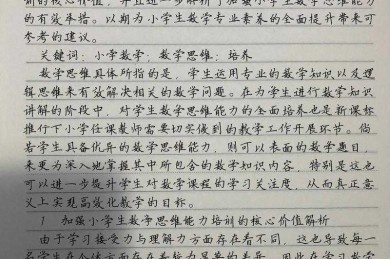 训的核心价值，并且进一步解析了加强小学生数学思维能力
的有效举措。以期为小学生数学专业素养的全面提升带来可
参考的建议。
关键词：小学数学；数学思维；培养
数学思维具体所指的是，学生运用专业的数学知识以及逻
辑思维来有效解决相关的数学问题。在为学生进行数学知识
讲解的阶段中，对学生数学思维能力的全面培养也是新课标
推行下小学任课教师需要切实做到的教学工作开展环节。倘
若学生具备优异的数学思维能力，则可以表面的数学题目，
来更为深入地掌握其中所包含的数学知识内容，特别是这也
可以进一步提升学生对数学课程的学习关注度，从而真正意
义上实现高效化教学的目标。
1 加强小学生数学思维能力培训的核心价值解析
由于学习接受力与理解力方面存在着不同，这也导致每一